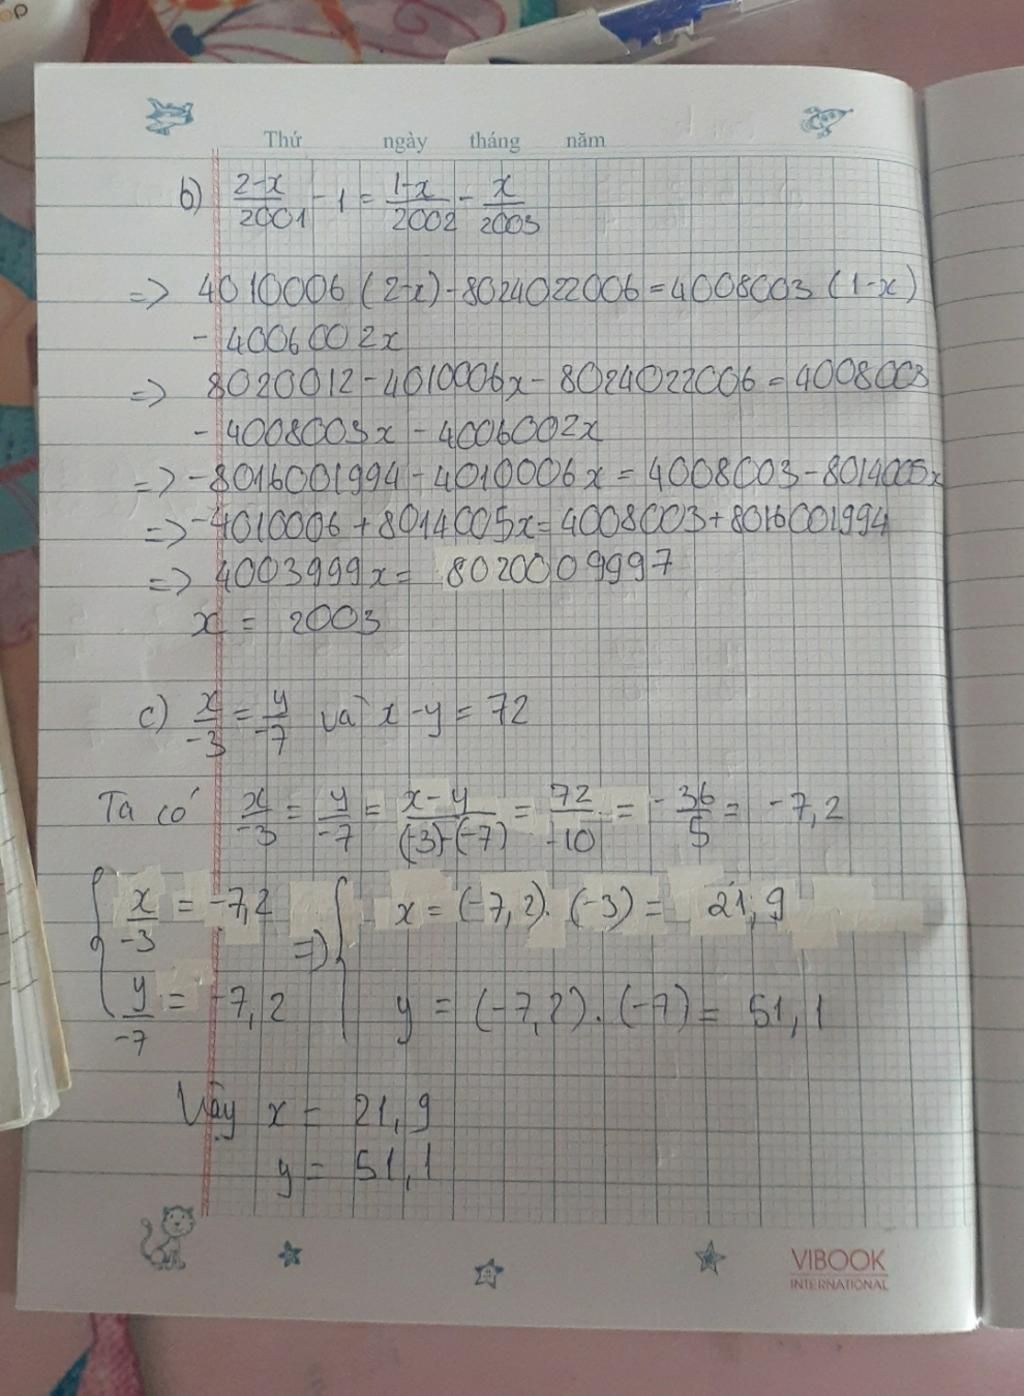 Thứ ngày tháng năm
b) (2-x)/2001 - 1 = (1-x)/2002 - x/2003
=> 4010006 (2-x) - 8024022006 = 4008003 (1-x)
- 4006002x
=> 8020012 - 4010006x - 8024022006 = 4008003
- 4008003x - 4006002x
=> -8016001994 - 4010006x = 4008003 - 8014005x
=> -4010006 + 8014005x = 4008003 + 8016001994
=> 4003999x = 8020009997
x = 2003
c) x/-3 = y/-7 và x - y = 72
Ta có x/-3 = y/-7 = (x-y)/((-3)-(-7)) = 72/-10 = -36/5 = -7,2
{ x/-3 = -7,2 => { x = (-7,2). (-3) = 21,9
y/-7 = -7,2 y = (-7,2). (-7) = 51,1
Vậy x = 21,9
y = 51,1
VIBOOK
INTERNATIONAL